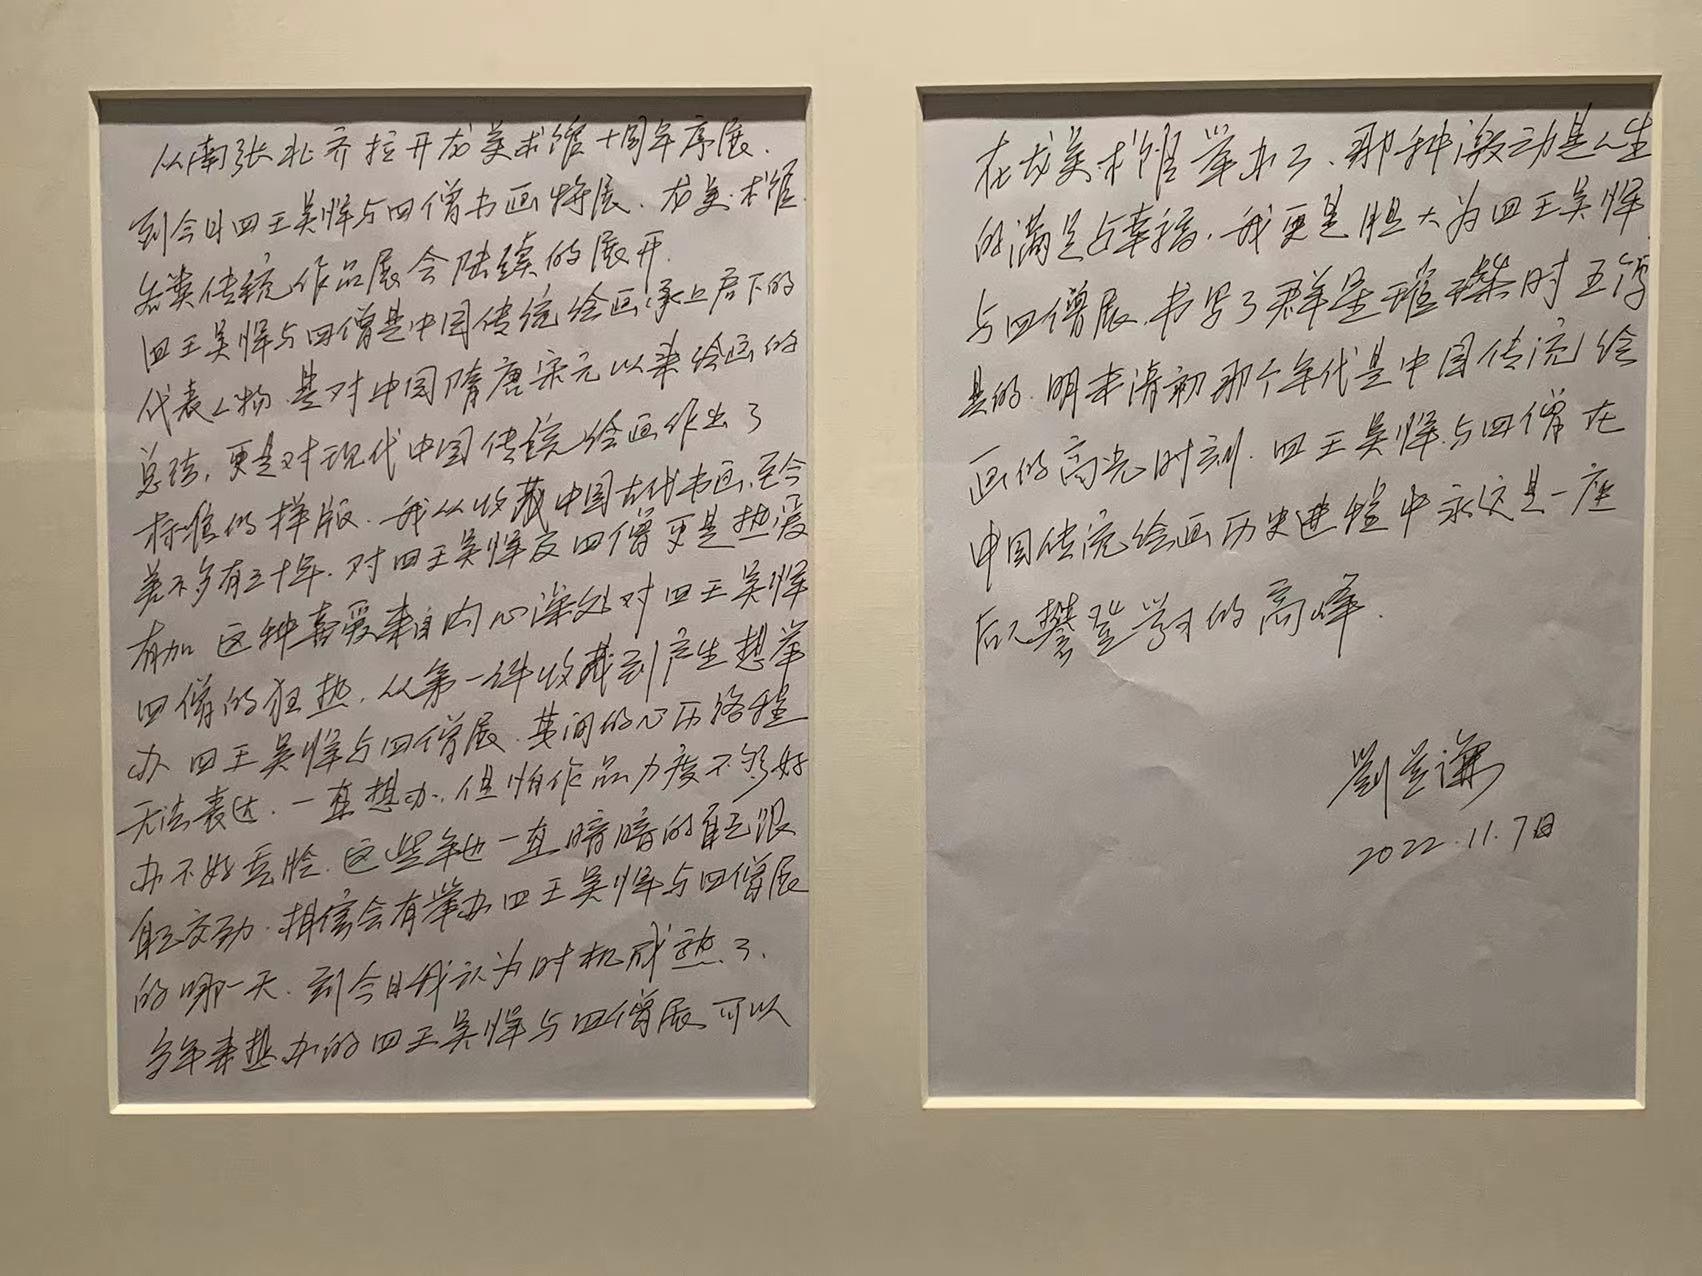 从南张北齐拉开龙美术馆十周年序展、
到今日四王吴恽与四僧书画特展、龙美术馆
各类传统作品展会陆续的展开.
四王吴恽与四僧是中国传统绘画承上启下的
代表人物、是对中国隋唐宋元以来绘画的
总结，更是对现代中国传统绘画作出了
标准的样版、我从收藏中国古代书画、至今
差不多有三十年、对四王吴恽及四僧更是热爱
有加 这种喜爱来自内心深处对四王吴恽
四僧的狂热、从第一件收藏到产生想举
办四王吴恽与四僧展、其间的心历路程
无法表达、一直想办、但怕作品力度不够好
办不好丢脸、这些年也一直暗暗的自己跟
自己较劲、相信会有举办四王吴恽与四僧展
的哪一天、到今日我认为时机成熟了、
多年来想办的四王吴恽与四僧展、可以
在龙美术馆举办了、那种激动是人生
的满足与幸福、我更是胆大为四王吴恽
与四僧展、书写了群星璀璨时五字
是的、明末清初那个年代是中国传统绘
画的高光时刻、四王吴恽与四僧在
中国传统绘画历史进程中永远是一座
后人攀登学习的高峰.
劉益謙
2022.11.7日